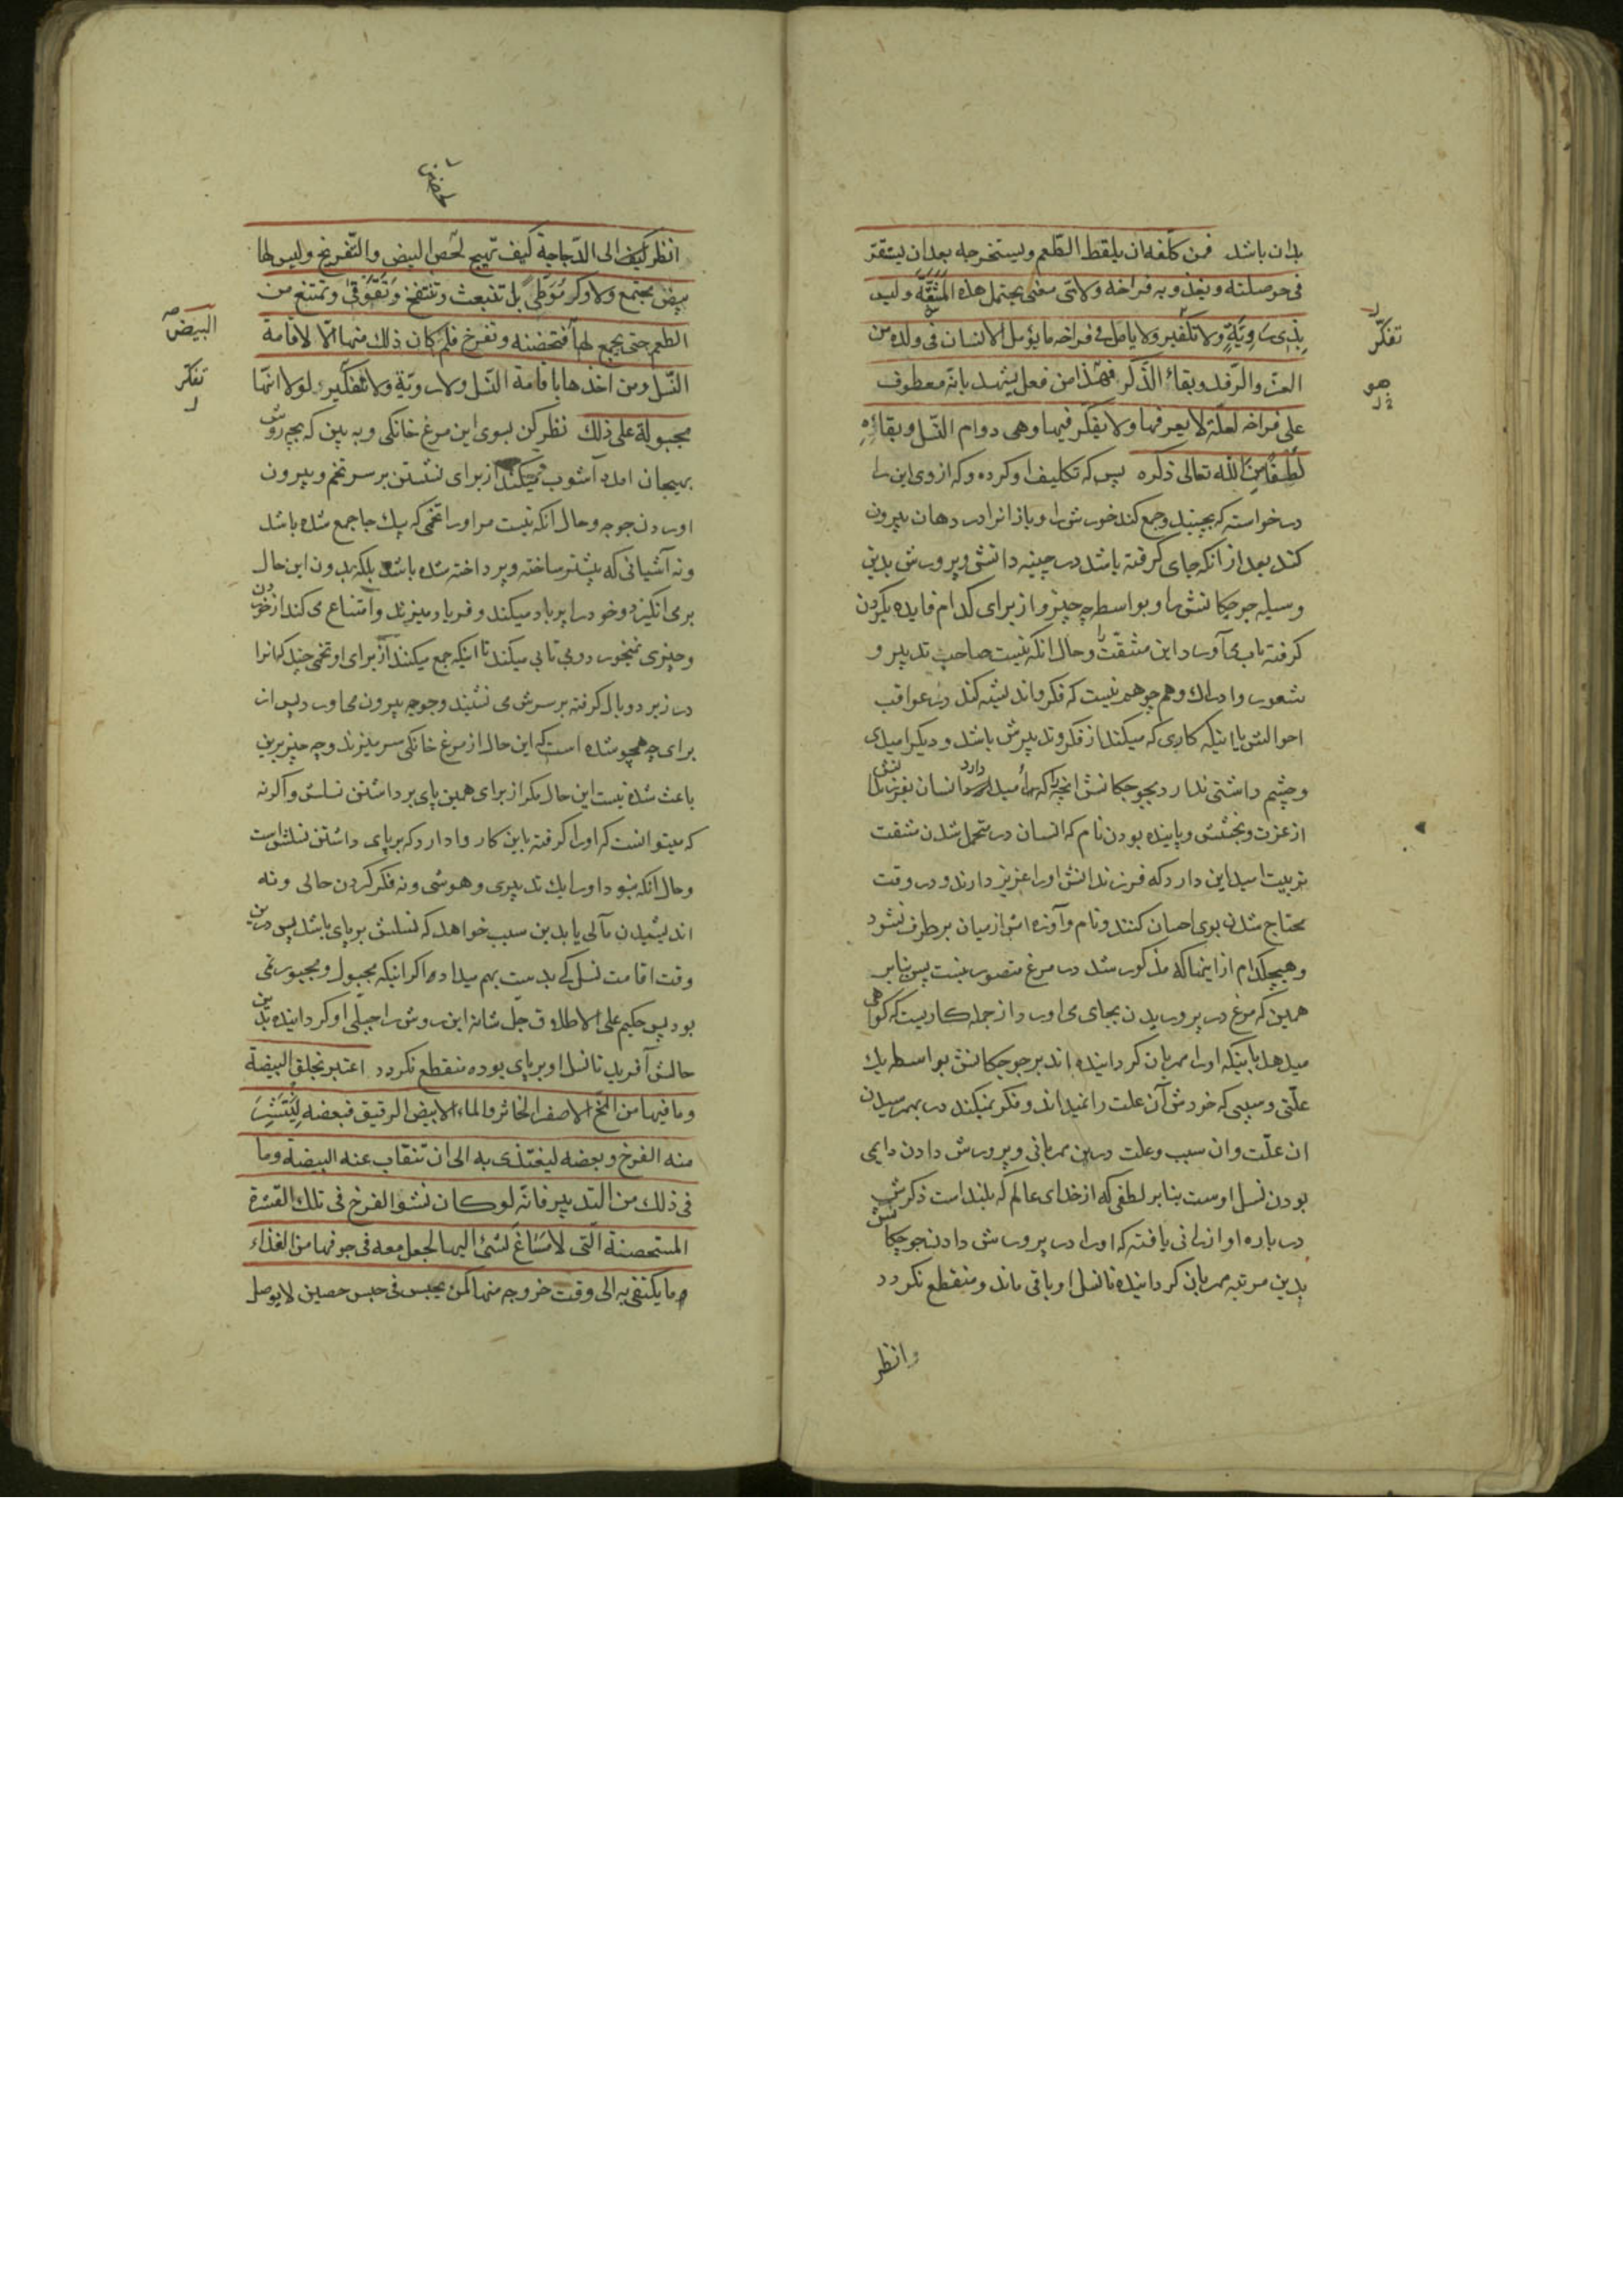 بدان باشد فمن كلّفه ان يلقط الطّعم ويستخرجه بعد ان يستقرّ
فى حوصلته ويغذو به فراخه ولاىّ معنى يحتمل هذه المشقّة وليس
بذى رويّة ولا تفكير ولا يامل فى فراخه ما يؤمل الانسان فى ولده من
تفكّر
العزّ والرّفد وبقاء الذّكر فهذا من فعل يشهد بانّه معطوف
هو
على فراخه لعلّة لا يعرفها ولا يفكّر فيها وهى دوام النّسل وبقاؤه
لطفا من الله تعالى ذكره پس كه تكليف او كرده و كه از وى اين را
درخواسته كه بچيند و جمع كند خورش را و باز انرا در دهان بيرون
كند بعد از انكه جاى گرفته باشد در چينه دانش و پرورش بدين
وسيله جوجكانش را و بواسطه چه چيز و از براى كدام فايده بگردن
گرفته تاب مى آورد اين مشقّت را و حال انكه نيست صاحب تدبير و
شعور و ادراك و هم چو هم نيست كه فكر و انديشه كند در عواقب
احوالش يا اينكه كارى كه ميكند از فكر و تدبيرش باشد و ديگر اميدى
و چشم داشتى ندارد بجوجكانش انچه را كه اميد دارد انسان بفرزندانش
از عزت و بخشش و پاينده بودن نام كه انسان در متحمل شدن مشقت
تربيت اميد اين دارد كه فرزندانش او را عزيز دارند و در وقت
محتاج شدن بوى احسان كنند و نام و آوازه اش از ميان برطرف نشود
و هيچكدام از اينها كه مذكور شد در مرغ متصور نيست پس بنابر
همين كه مرغ در پروريدن بجاى مى اورد از جمله كاريست كه گواهى
ميدهد باينكه او را مهربان گردانيده اند بر جوجكانش بواسطه يك
علّتى و سببى كه خودش آن علت را نميداند و فكر نميكند در بهم رسيدن
ان علّت و ان سبب و علت درين مهربانى و پرورش دادن دايمى
بودن نسل اوست بنابر لطفى كه از خداى عالم كه بلند است ذكرش
در باره او ارزانى يافته كه او را در پرورش دادن جوجكانش
بدين مرتبه مهربان گردانيده تا نسل او باقى ماند و منقطع نگردد
وانظر
انظر كيف الى الدّجاجة كيف تهيج لحضن البيض والتّفريخ وليس لها
بيض يجتمع ولا وكر مُوَطّى بل تنبعث وتنتفخ وتقوقى وتمتنع من
الطعم حتى يجمع لها فتحضنه وتفرخ فلم كان ذلك منها الّا لاقامة
البيض
النّسل ومن اخذها باقامة النّسل ولا رويّة ولا تفكير لولا انّها
تفكّر
مجبولة على ذلك نظر كن بسوى اين مرغ خانگى و به بين كه بچه روش
بهيجان امده آشوب ميكند از براى نشستن بر سر تخم و بيرون
اوردن جوجه و حال انكه نيست مر او را تخمى كه بيك جا جمع شده باشد
و نه آشيانى كه پيشتر ساخته و پرداخته شده باشد بلكه بدون اين حال
بر مى انگيزد و خود را پر باد ميكند و فرياد ميزند و امتناع مى كند از خوردن
و چيزى نميخورد و بى تابى ميكند تا اينكه جمع ميكنند از براى او تخمى چند كه انرا
در زير دو بال گرفته بر سرش مى نشيند و جوجه بيرون مى اورد پس از
براى چه همچو شده است كه اين حال از مرغ خانگى سر ميزند و چه چيز برين
باعث شده نيست اين حال مگر از براى همين پاى برداشتن نسلش و اگر نه
كه ميتوانست كه او را گرفته باين كار وا دارد كه برپاى داشتن نسلش است
و حال انكه نبود او را يك تدبيرى و هوشى و نه فكر كردن حالى و نه
انديشيدن مآلى يا بدين سبب خواهد كه نسلش برپاى باشد پس درين
وقت اقامت نسل كى بدست بهم ميداد اگر اينكه مجبول و مجبور نمى
بود پس حكيم على الاطلاق جلّ شانه اين روش را جبلّى او گردانيده بدين
حالش آفريد تا نسل او برپاى بوده منقطع نگردد اعتبر بخلق البيضة
وما فيها من المخّ الاصفر الخاثر والماء الابيض الرقيق فبعضه لينتشر
منه الفرخ وبعضه ليغتذى به الى ان تنقاب عنه البيضة وما
فى ذلك من التدبير فانّه لو كان نشو الفرخ فى تلك القشرة
المستحصنة الّتى لا مساغ لشئ اليها لجعل معه فى جوفها من الغذاء
ما يكتفى به الى وقت خروجه منها كمن يحبس فى حبس حصين لا يوصل